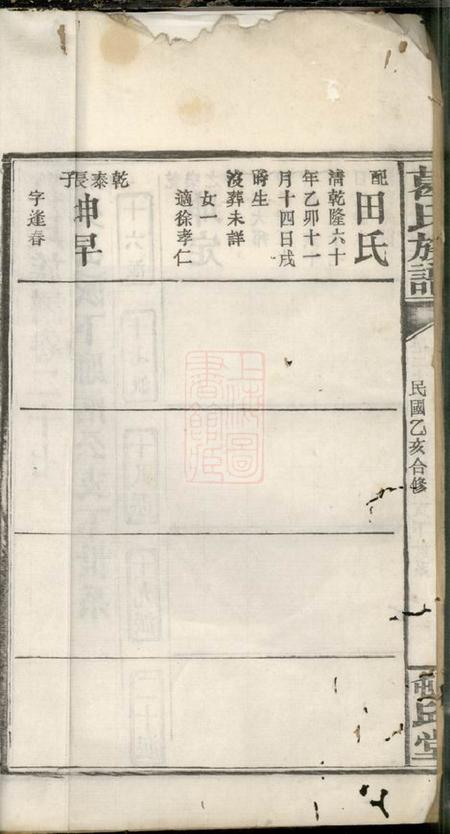 氏族譜
民國乙亥合修
堂
配田氏
清乾隆六十
年乙卯十一
月十四日戌
時生
沒葬未詳
女一
適徐孝仁
乾泰長子
坤早
字逢春
上海圖
書館藏